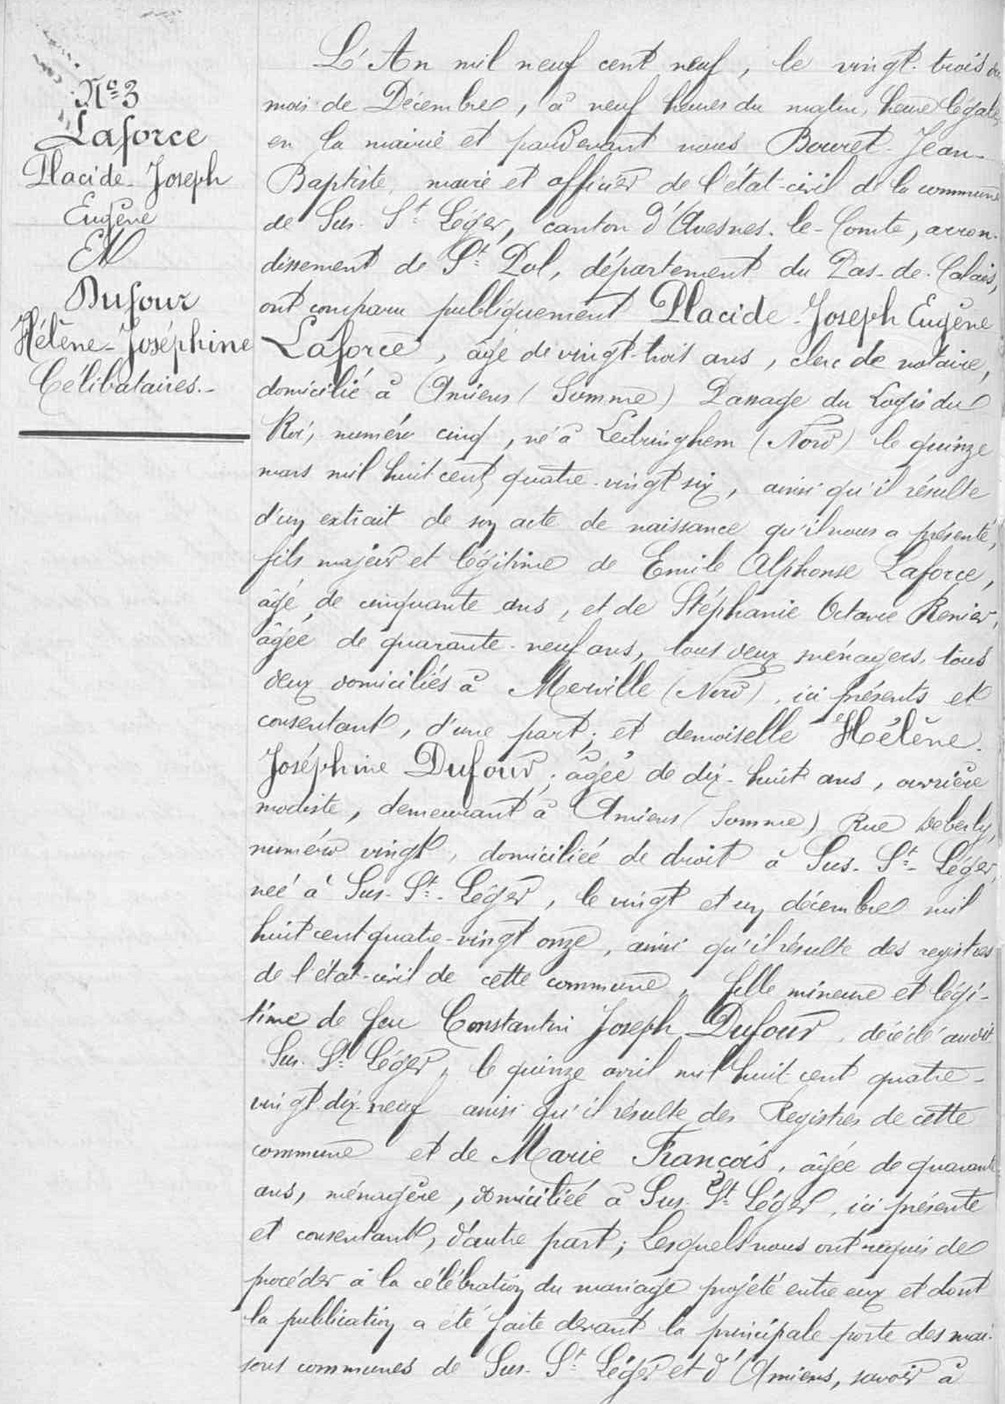 N° 3
Laforce
Placide-Joseph
Eugène
Et
Dufour
Hélène-Joséphine
Célibataires.-
L'An mil neuf cent neuf, le vingt-trois du
mois de Décembre, à neuf heures du matin, heure légale
en la mairie et pardevant nous Bouret Jean-
Baptiste, maire et officier de l'état-civil de la commune
de Sus-St Léger, canton d'Avesnes-le-Comte, arron-
dissement de St Pol, département du Pas-de-Calais,
ont comparu publiquement Placide-Joseph Eugène
Laforce, âgé de vingt-trois ans, clerc de notaire,
domicilié à Amiens (Somme) Passage du Logis du
Roi, numéro cinq, né à Ledringhem (Nord) le quinze
mars mil huit cent quatre-vingt six, ainsi qu'il résulte
d'un extrait de son acte de naissance qu'il nous a présenté,
fils majeur et légitime de Emile Alphonse Laforce,
âgé de cinquante ans, et de Stéphanie Octavie Renier,
âgée de quarante-neuf ans, tous deux ménagers, tous
deux domiciliés à Merville (Nord), ici présents et
consentant, d'une part; et demoiselle Hélène
Joséphine Dufour, âgée de dix-huit ans, ouvrière
modiste, demeurant à Amiens (Somme) Rue Deberly,
numéro vingt, domiciliée de droit à Sus-St-Léger,
née à Sus-St-Léger, le vingt et un décembre mil
huit cent quatre-vingt onze, ainsi qu'il résulte des registres
de l'état-civil de cette commune, fille mineure et légi-
time de feu Constantin Joseph Dufour, décédé audit
Sus-St Léger, le quinze avril mil huit cent quatre-
vingt dix-neuf ainsi qu'il résulte des Registres de cette
commune et de Marie François, âgée de quarante
ans, ménagère, domiciliée à Sus-St Léger, ici présente
et consentant, d'autre part; Lesquels nous ont requis de
procéder à la célébration du mariage projeté entre eux et dont
la publication a été faite devant la principale porte des mai-
sons communes de Sus-St Léger et d'Amiens, savoir à